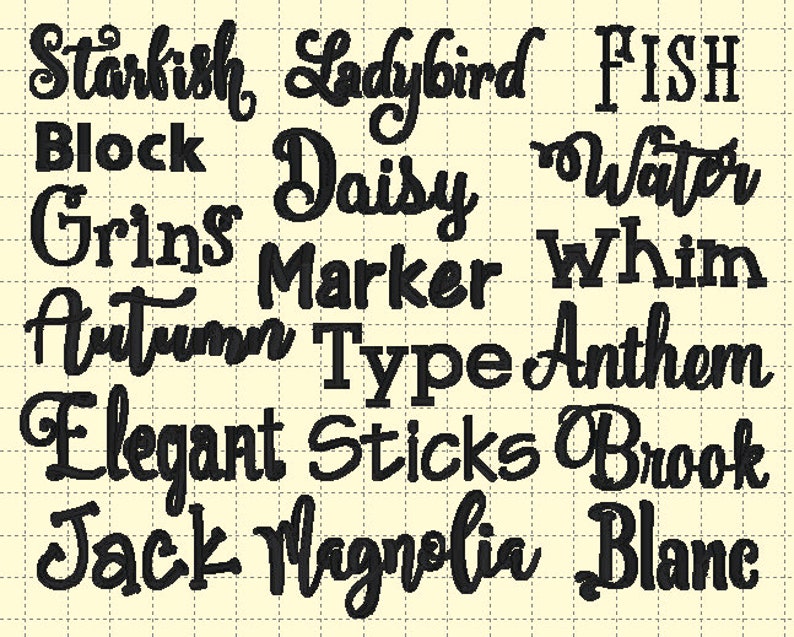 Starfish Ladybird FISH
Block Daisy Water
Grins Marker Whim
Autumn Type Anthem
Elegant Sticks Brook
Jack Magnolia Blanc